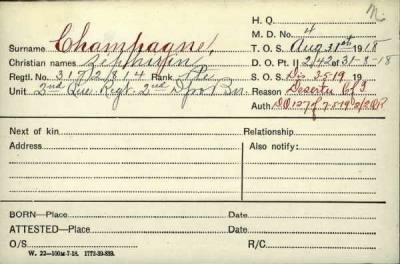 H. Q.
M. D. No. 4
Surname Champagne,
T. O. S. Aug 31st 1918
Christian names Zephirin
D. O. Pt. II 242 of 31-8-18
Regtl. No. 3172814 Rank Pte
S. O. S. Dis 3519 19
Unit 2nd Que. Regt. 2nd Dpo Bn.
Reason Deserter C of I
Auth. DO 127 of 7-5-19 2/2QR
Next of kin
Relationship
Address
Also notify:
BORN—Place
Date
ATTESTED—Place
Date
O/S
R/C
W. 22—100M-7-18. 1772-39-839.